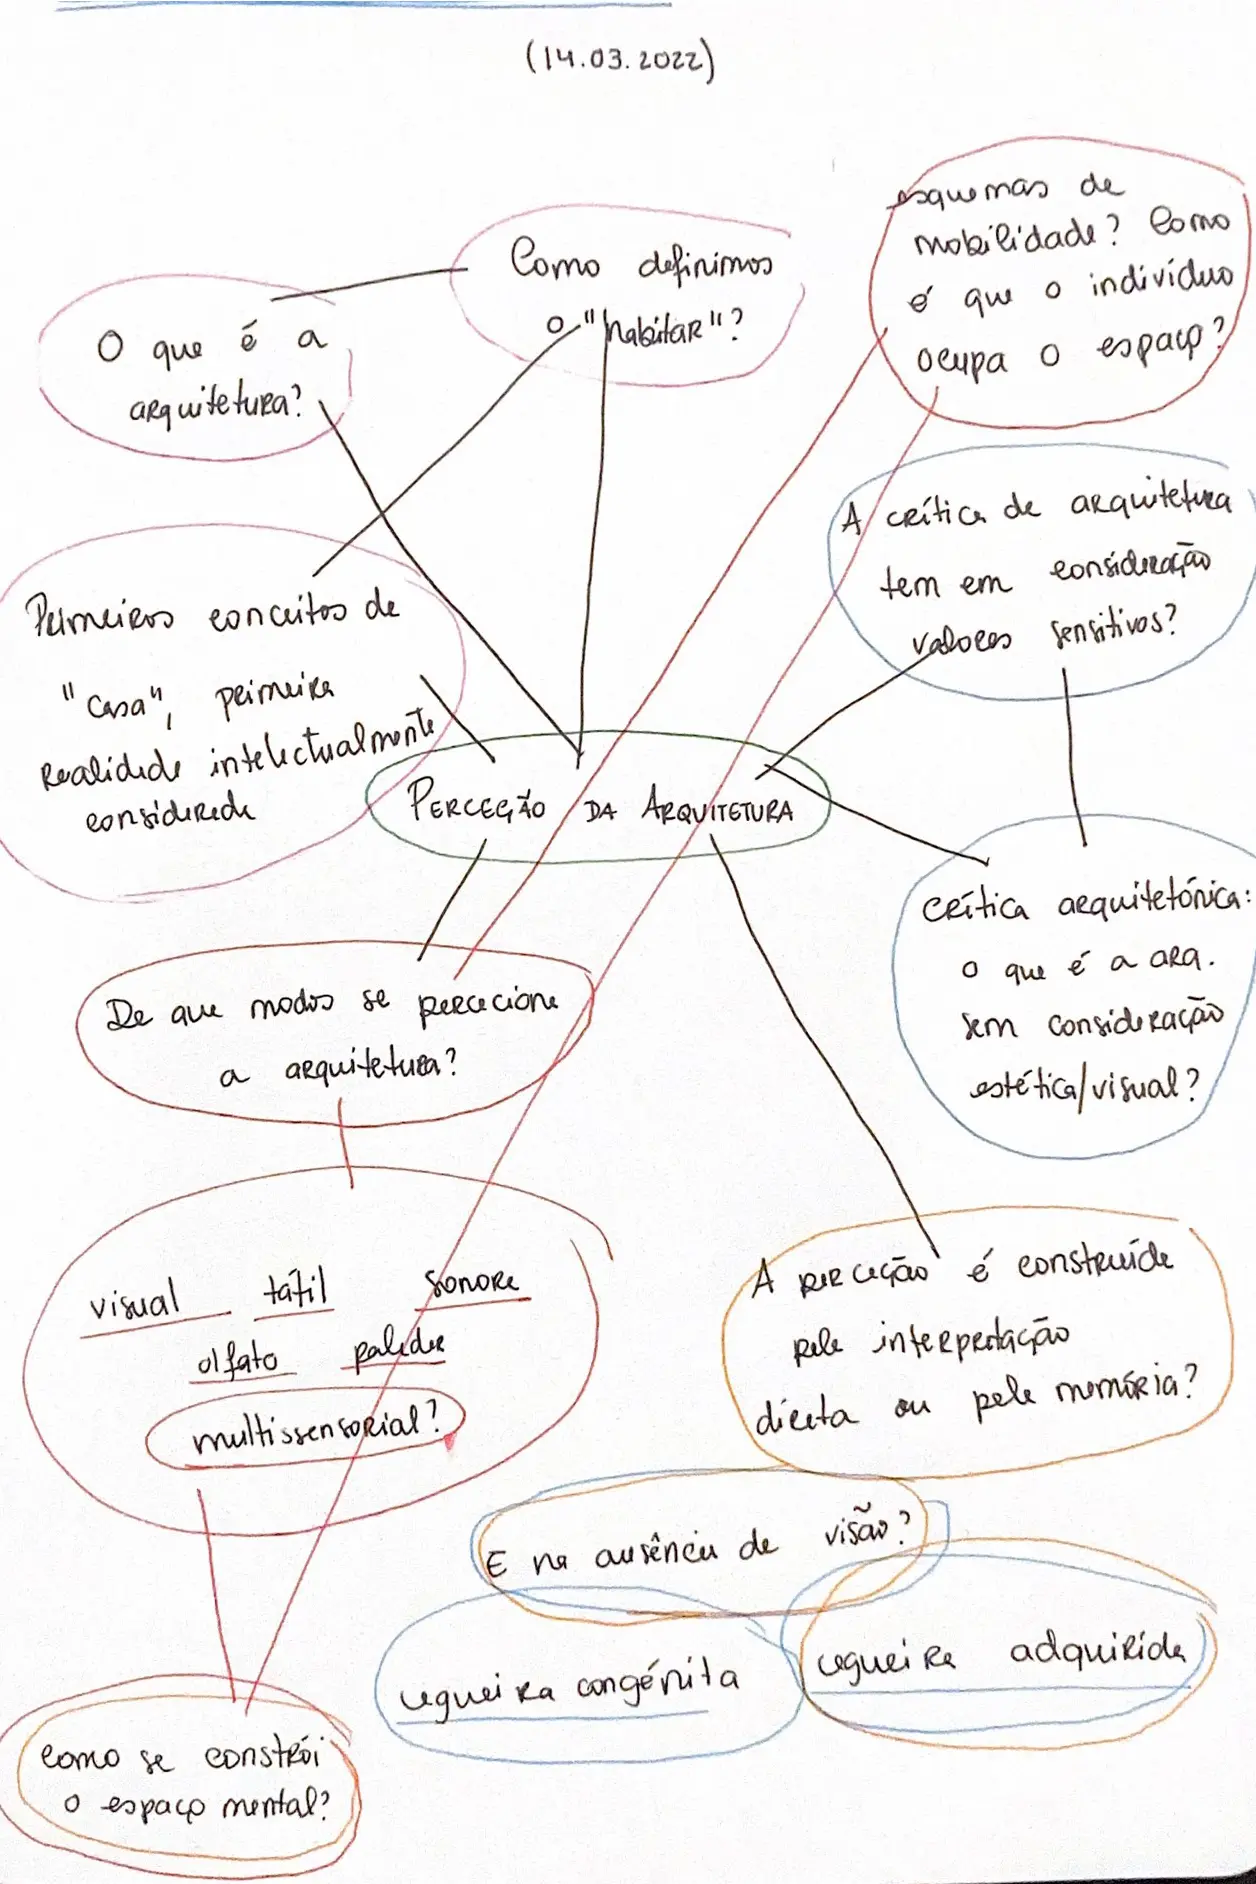 (14.03.2022)
esquemas de
mobilidade? Como
é que o indivíduo
ocupa o espaço?
Como definimos
o "habitar"?
O que é a
arquitetura?
A crítica de arquitetura
tem em consideração
valores sensitivos?
Primeiros conceitos de
"casa", primeira
realidade intelectualmente
considerada
PERCEÇÃO DA ARQUITETURA
crítica arquitetónica:
o que é a arq.
sem consideração
estética/visual?
De que modos se perceciona
a arquitetura?
visual tátil sonora
olfato paladar
multissensorial?
A perceção é construída
pela interpretação
direta ou pela memória?
E na ausência de visão?
cegueira congénita
cegueira adquirida
como se constrói
o espaço mental?